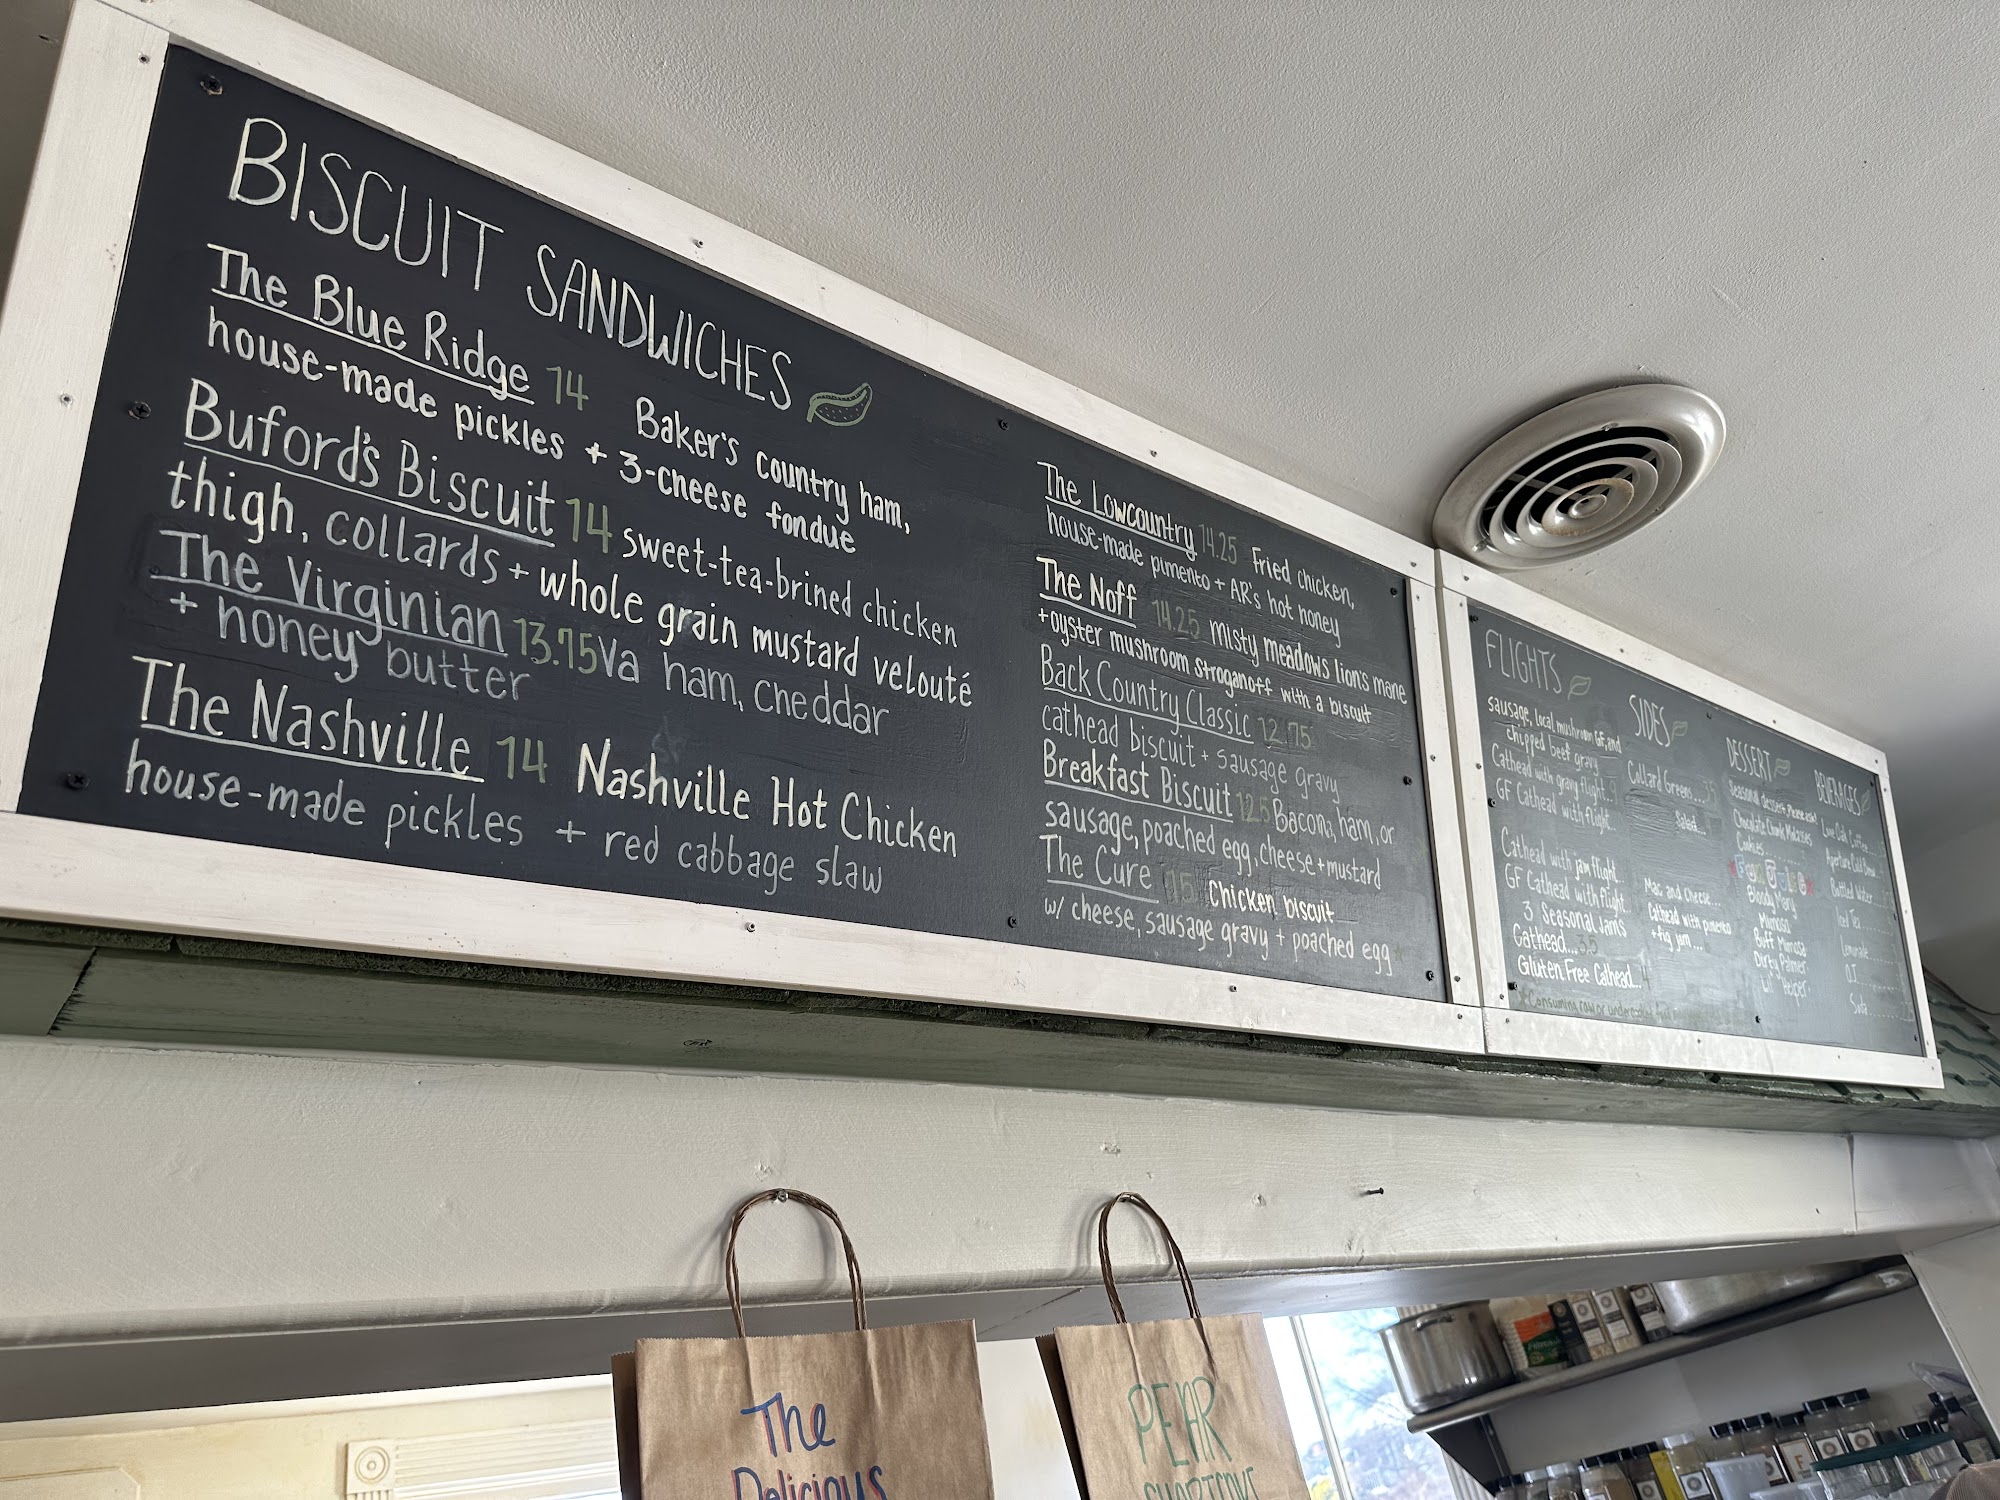 BISCUIT SANDWICHES
The Blue Ridge 14 Baker's country ham,
house-made pickles + 3-cheese fondue
Buford's Biscuit 14 sweet-tea-brined chicken
thigh, collards + whole grain mustard velouté
The Virginian 13.75 Va ham, cheddar
+ honey butter
The Nashville 14 Nashville Hot Chicken
house-made pickles + red cabbage slaw
The Lowcountry 14.25 Fried chicken,
house-made pimento + AR's hot honey
The Noff 14.25 misty meadows lion's mane
+oyster mushroom stroganoff with a biscuit
Back Country Classic 12.75
cathead biscuit + sausage gravy
Breakfast Biscuit 12.5 Bacon, ham, or
sausage, poached egg, cheese + mustard
The Cure 15 Chicken biscuit
w/ cheese, sausage gravy + poached egg
FLIGHTS
sausage, local mushroom GF, and
chipped beef gravy
Cathead with gravy flight
GF Cathead with flight..
Cathead with jam flight
GF Cathead with flight
3 Seasonal Jams
Cathead... 3.5
Gluten Free Cathead... 4
*Consuming raw or
SIDES
Collard Greens...
Salad...
Mac and Cheese...
Cathead with pimento
+ fig jam...
DESSERT
Seasonal dessert, Please ask!
Chocolate Chunk Molasses
Cookies
Bloody Mary
Mimosa
Buff Mimosa
Dirty Palmer
Lil' Helper
BEVERAGES
Coffee
Bottled Water
Iced Tea
Lemonade
O.J.
Soda
The
Delicious
PEAR